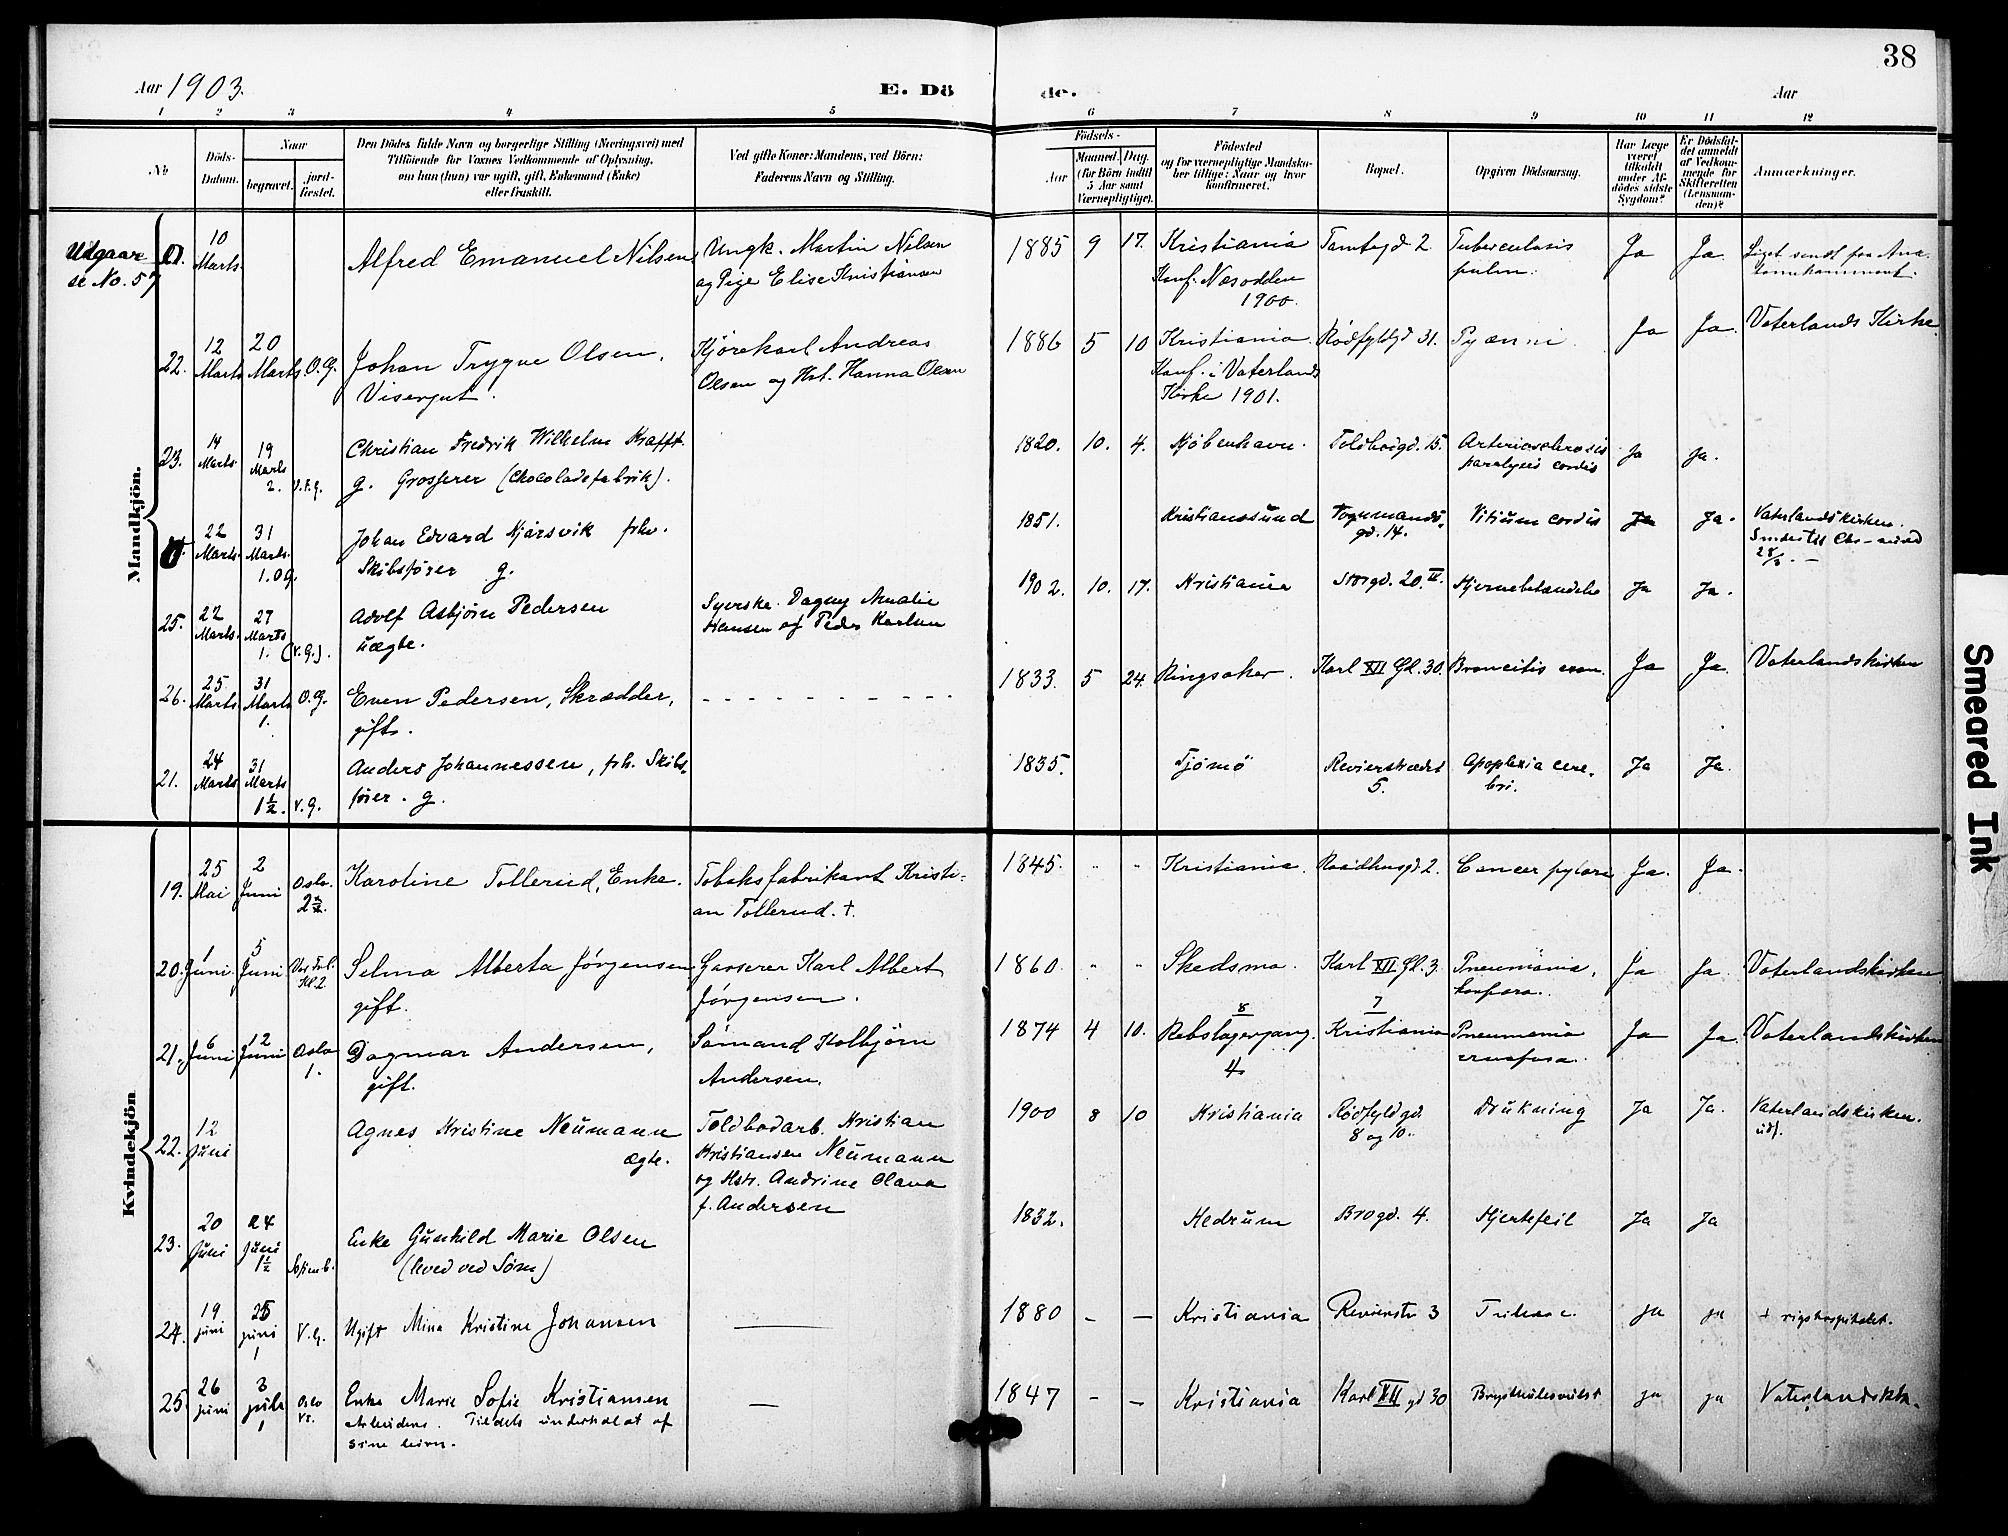 38
Aar 1903.
E. Dö
de.
Aar
1 2 3 4 5 6 7 8 9 10 11 12
No
Döds-
Datum.
Naar
begravet.
jord-
fæstet.
Den Dödes fulde Navn og borgerlige Stilling (Næringsvei) med
Tilföiende for Voxnes Vedkommende af Oplysning,
om han (hun) var ugift, gift, Enkemand (Enke)
eller fraskilt.
Ved gifte Koner: Mandens, ved Börn:
Faderens Navn og Stilling.
Födsels-
Aar
Maaned. Dag.
(for Börn indtil
5 Aar samt
Værnepligtige).
Födested
og for værnepligtige Mandska-
ber tillige: Naar og hvor
konfirmeret.
Bopæl.
Opgiven Dödsaarsag.
Har Læge
været
tilkaldt
under Af-
dödes sidste
Sygdom?
Er Dödsfal-
det anmeldt
af Vedkom-
mende for
Skifteretten
(Lensman-
den)?
Anmærkninger.
Mandkjön.
Udgaar
se No. 57
10
Marts
Alfred Emanuel Nilsen
Ungk. Martin Nilsen
og Pige Elise Kristiansen
1885 9 17. Kristiania
Konf. Nesodden
1900.
Tomtegd 2. Tuberculosis
pulm. Ja Ja.
Liget sendt fra Ana-
22. 12
Marts
20
Marts. O.G.
Johan Trygve Olsen,
Visergut.
Kjørekarl Andreas
Olsen og Hst. Hanna Olsen
1886 5 10 Kristiania.
Konf. i Vaterlands
Kirke 1901.
Rødfyldgd 31. Pyæmi. Ja Ja. Vaterlands Kirke.
23. 14
Marts
19
Marts
2. V.F.G.
Christian Fredrik Wilhelm Krafft.
g. Grosserer (Chocoladefabrik).
1820. 10. 4. Kjøbenhavn. Toldbodgd. 15. Arteriosclerosis
paralysis cordis Ja Ja.
22
Marts.
31
Marts.
1. OG.
Johan Edvard Kjårsvik fhv.
Skibsfører g.
1851. Kristianssund Tognmands-
gd. 14. Vitium cordis Ja Ja. Vaterlandskirken.
28/3. —
25. 22
Marts.
27
Marts
1. (V.G.).
Adolf Asbjørn Pedersen
uægte.
Syerske Dagny Amalie
Hansen og Peder Karlsen
1902. 10. 17. Kristiania Storgd. 20. II. Hjernebetændelse Ja Ja.
26. 25
Marts.
31
Marts
1. O.G.
Even Pedersen, Skrædder,
gift.
1833. 5 24. Ringsaker. Karl XII Gd. 30. Broncitis Ja Ja. Vaterlandskirken
21. 24
Marts
31
Marts
1½. V.G.
Anders Johannessen, fh. Skibs-
fører. g.
1835. Tjömö Revierstrædet
5. Apoplexia cere-
bri. Ja Ja.
Kvindekjön
19. 25
Mai
2
Juni Oslo.
2½.
Karoline Tollerud, Enke.
Tobaksfabrikant Kristi-
an Tollerud. †.
1845. " " Kristiania. Raadhusgd. 2. Cancer pylori Ja. Ja.
20. 1
Juni.
5
Juni Vor Frel.
Kl. 2
Selma Alberta Jörgensen
gift.
Gasserer Karl Albert
Jörgensen.
1860. " " Skedsmo. Karl XII Gd. 3. Pneumonia, Ja Ja. Vaterlandskirken
21. 6
Juni
12
Juni Oslo
1.
Dagmar Andersen,
gift.
Sömand Kolbjörn
Andersen.
1874 4 10. 8 7
Rebslagergang.
4 Kristiania Pneumonia
crouposa. Ja Ja. Vaterlandskirken
22. 12
Juni
Agnes Kristine Neumann
ægte.
Toldbodarb. Kristian
Kristiansen Neumann
og Hstr. Andrine Olava
f. Andersen
1900 8 10 Kristiania Rødfyldgd.
8 og 10. Drukning Ja Ja. Vaterlandskirken.
udf.
23. 20
Juni
24
Juni
1½
Enke Gunhild Marie Olsen
(leved ved Søm)
1832. Hedrum Brogd. 4. Hjertefeil Ja Ja
24. 19
juni
25
juni
1 V.G.
Ugift Mina Kristine Johansen
1880 - - Kristiania Revierstr 3 ja ja + rigshospitalet.
25. 26
juni
3
juli
1 Oslo
Enke Marie Sofie Kristiansen
arbeiders. Tildels underholdt af
sine börn.
1847 - - Kristiania Karl XII gd 30 Brysthulesvulst ja ja Vaterlandskk.
Smeared Ink